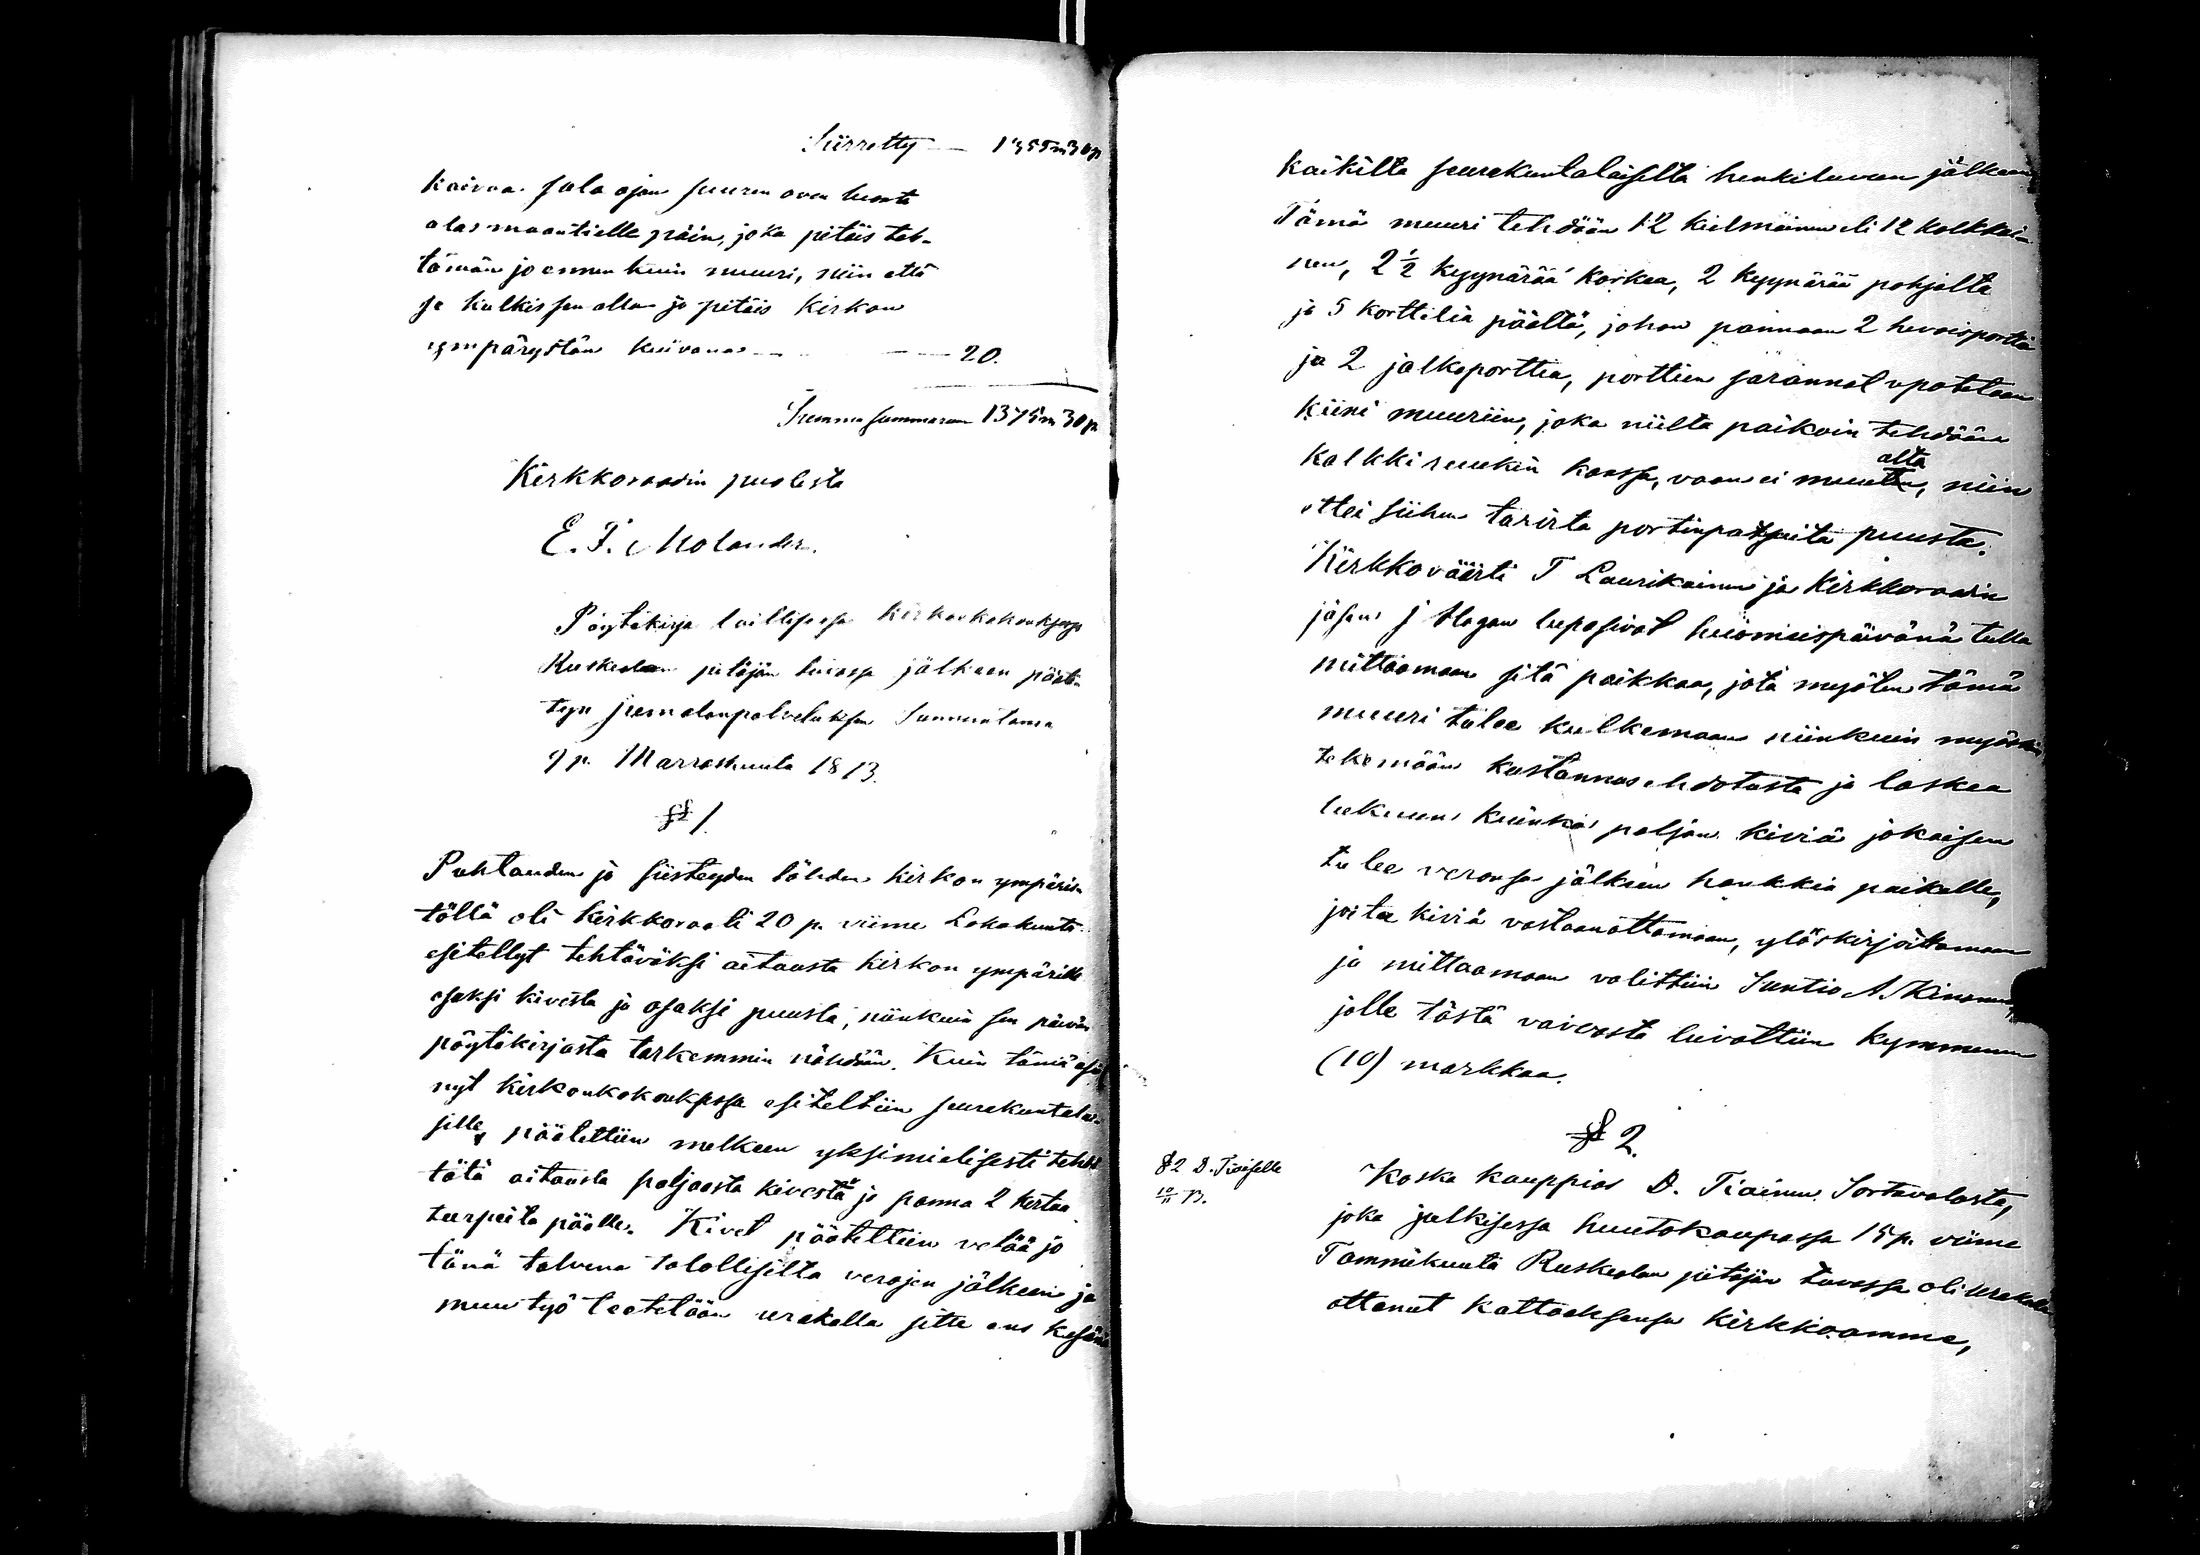 Siirretty — 1355 m 30 p
kaivaa sala ojan suuren oven luota
alas maantielle päin, joka pitäis teh-
tämän jo ennen kuin muuri, niin että
se kulkis sen alla ja pitäis kirkon
ympärystän kuivana — — 20.
Summa summarum 1375 m 30 p
Kirkkoraadin puolesta
E. F. Molander.
Pöytäkirja laillisessa kirkonkokouksessa
Ruskealan pitäjän tuvassa jälkeen pääte-
tyn jumalanpalveluksen Sunnuntaina
9 p. Marraskuuta 1873.
§ 1.
Puhtauden ja siisteyden tähden kirkon ympäris-
töllä oli kirkkoraati 20 p. viime Lokakuuta
esitellyt tehtäväksi aitausta kirkon ympärille
osaksi kivestä ja osaksi puusta, niinkuin sen päivän
pöytäkirjasta tarkemmin nähdään. Kuin tämä asia
nyt kirkonkokouksessa esiteltiin seurakuntalai-
sille, päätettiin melkeen yksimielisesti tehdä
tätä aitausta paljaasta kivestä ja panna 2 kertaa
turpeita päälle. Kivet päätettiin vetää jo
tänä talvena talollisilta verojen jälkeen ja
muu työ teetetään urakalla sitte ens kesänä
kaikilta seurakuntalaisilta henkiluvun jälkeen
Tämä muuri tehdään 12 kielmäinen eli 12 kolkkai-
nen, 2 1/2 kyynärää korkea, 2 kyynärää pohjalta
ja 5 korttelia päältä, johon pannaan 2 hevoisporttia
ja 2 jalkaporttia, porttien sarannat upotetaan
kiini muuriin, joka niiltä paikoin tehdään
kalkki ruukin kanssa, vaan ei muualta, niin
ettei siihen tarvita portinpatsaita puusta.
Kirkkoväärti T Laurikainen ja Kirkkoraadin
jäsen J Hagan lupasivat huomispäivänä tulla
mittaamaan sitä paikkaa, jota myöten tämä
muuri tulee kulkemaan niinkuin myöskin
tekemään kustannusehdotusta ja laskea
lukuun kuinka paljon kiviä jokaisen
tulee veronsa jälkeen hankkia paikalle,
joita kiviä vastaanottamaan, ylöskirjoittamaan
ja mittaamaan valittiin Suntio A. Kinnunen,
jolle tästä vaivasta luvattiin kymmenen
(10) markkaa.
§ 2.
§ 2 D. Tiaiselle
10/11 73.
Koska kauppias D. Tiainen Sortavalasta,
joka julkisessa huutokaupassa 15 p. viime
Tammikuuta Ruskealan pitäjän tuvassa oli urakalla
ottanut kattaaksensa kirkkoamme,